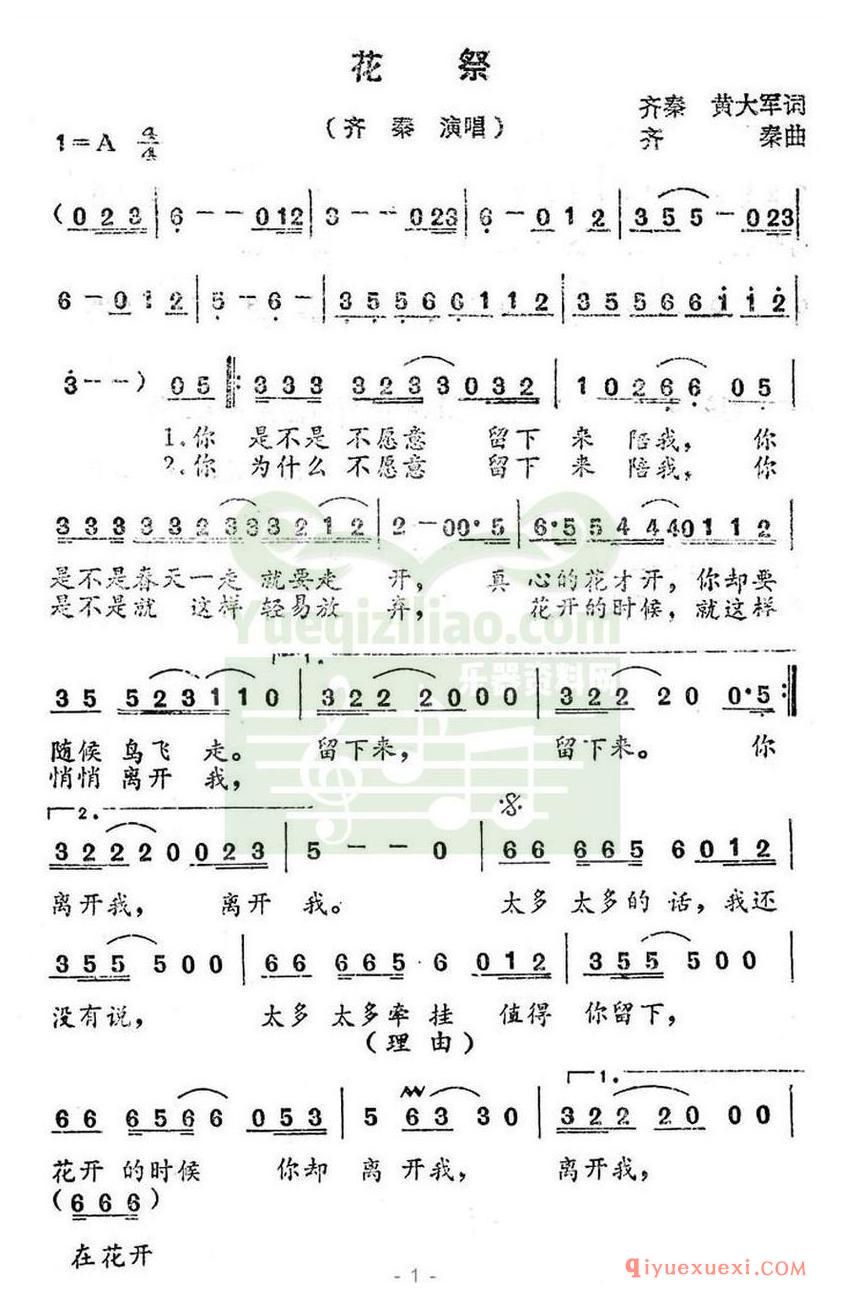 花 祭
齐秦 黄大军词
(齐 秦 演唱)
1=A 4/4
齐 秦曲
(0 2 3 | 6 - - 0 1 2 | 3 - - 0 2 3 | 6 - 0 1 2 | 3 5 5 - 0 2 3 |
6 - 0 1 2 | 5 - 6 - | 3 5 5 6 6 1 1 2 | 3 5 5 6 6 1 1 2 |
3 - - ) 0 5 ‖: 3 3 3 3 2 3 3 0 3 2 | 1 0 2 6 6 0 5 |
1.你 是不是 不愿意 留下 来 陪我, 你
2.你 为什么 不愿意 留下 来 陪我, 你
3 3 3 3 3 2 3 3 3 2 1 2 | 2 - 0 0·5 | 6·5 5 4 4 4 0 1 1 2 |
是不是春天一走 就要走 开, 真 心的花才开,你却要
是不是就 这样轻易放 弃, 花开的时候,就这样
Yueqiziliao.com
乐器资料网
1.
3 5 5 2 3 1 1 0 | 3 2 2 2 0 0 0 | 3 2 2 2 0 0·5 :‖
随候 鸟飞 走。 留下来, 留下来。 你
悄悄 离开 我,
2.
3 2 2 2 0 0 2 3 | 5 - - 0 | 6 6 6 6 5 6 0 1 2 |
离开我, 离开 我。 太多 太多的 话,我还
3 5 5 5 0 0 | 6 6 6 6 5·6 0 1 2 | 3 5 5 5 0 0 |
没有说, 太多 太多牵 挂 值得 你留下,
(理由)
1.
6 6 6 5 6 6 0 5 3 | 5 6 3 3 0 | 3 2 2 2 0 0 0 |
花开 的时候 你却 离 开我, 离开我,
(6 6 6)
在花开
- 1 -
qiyuexuexi.com